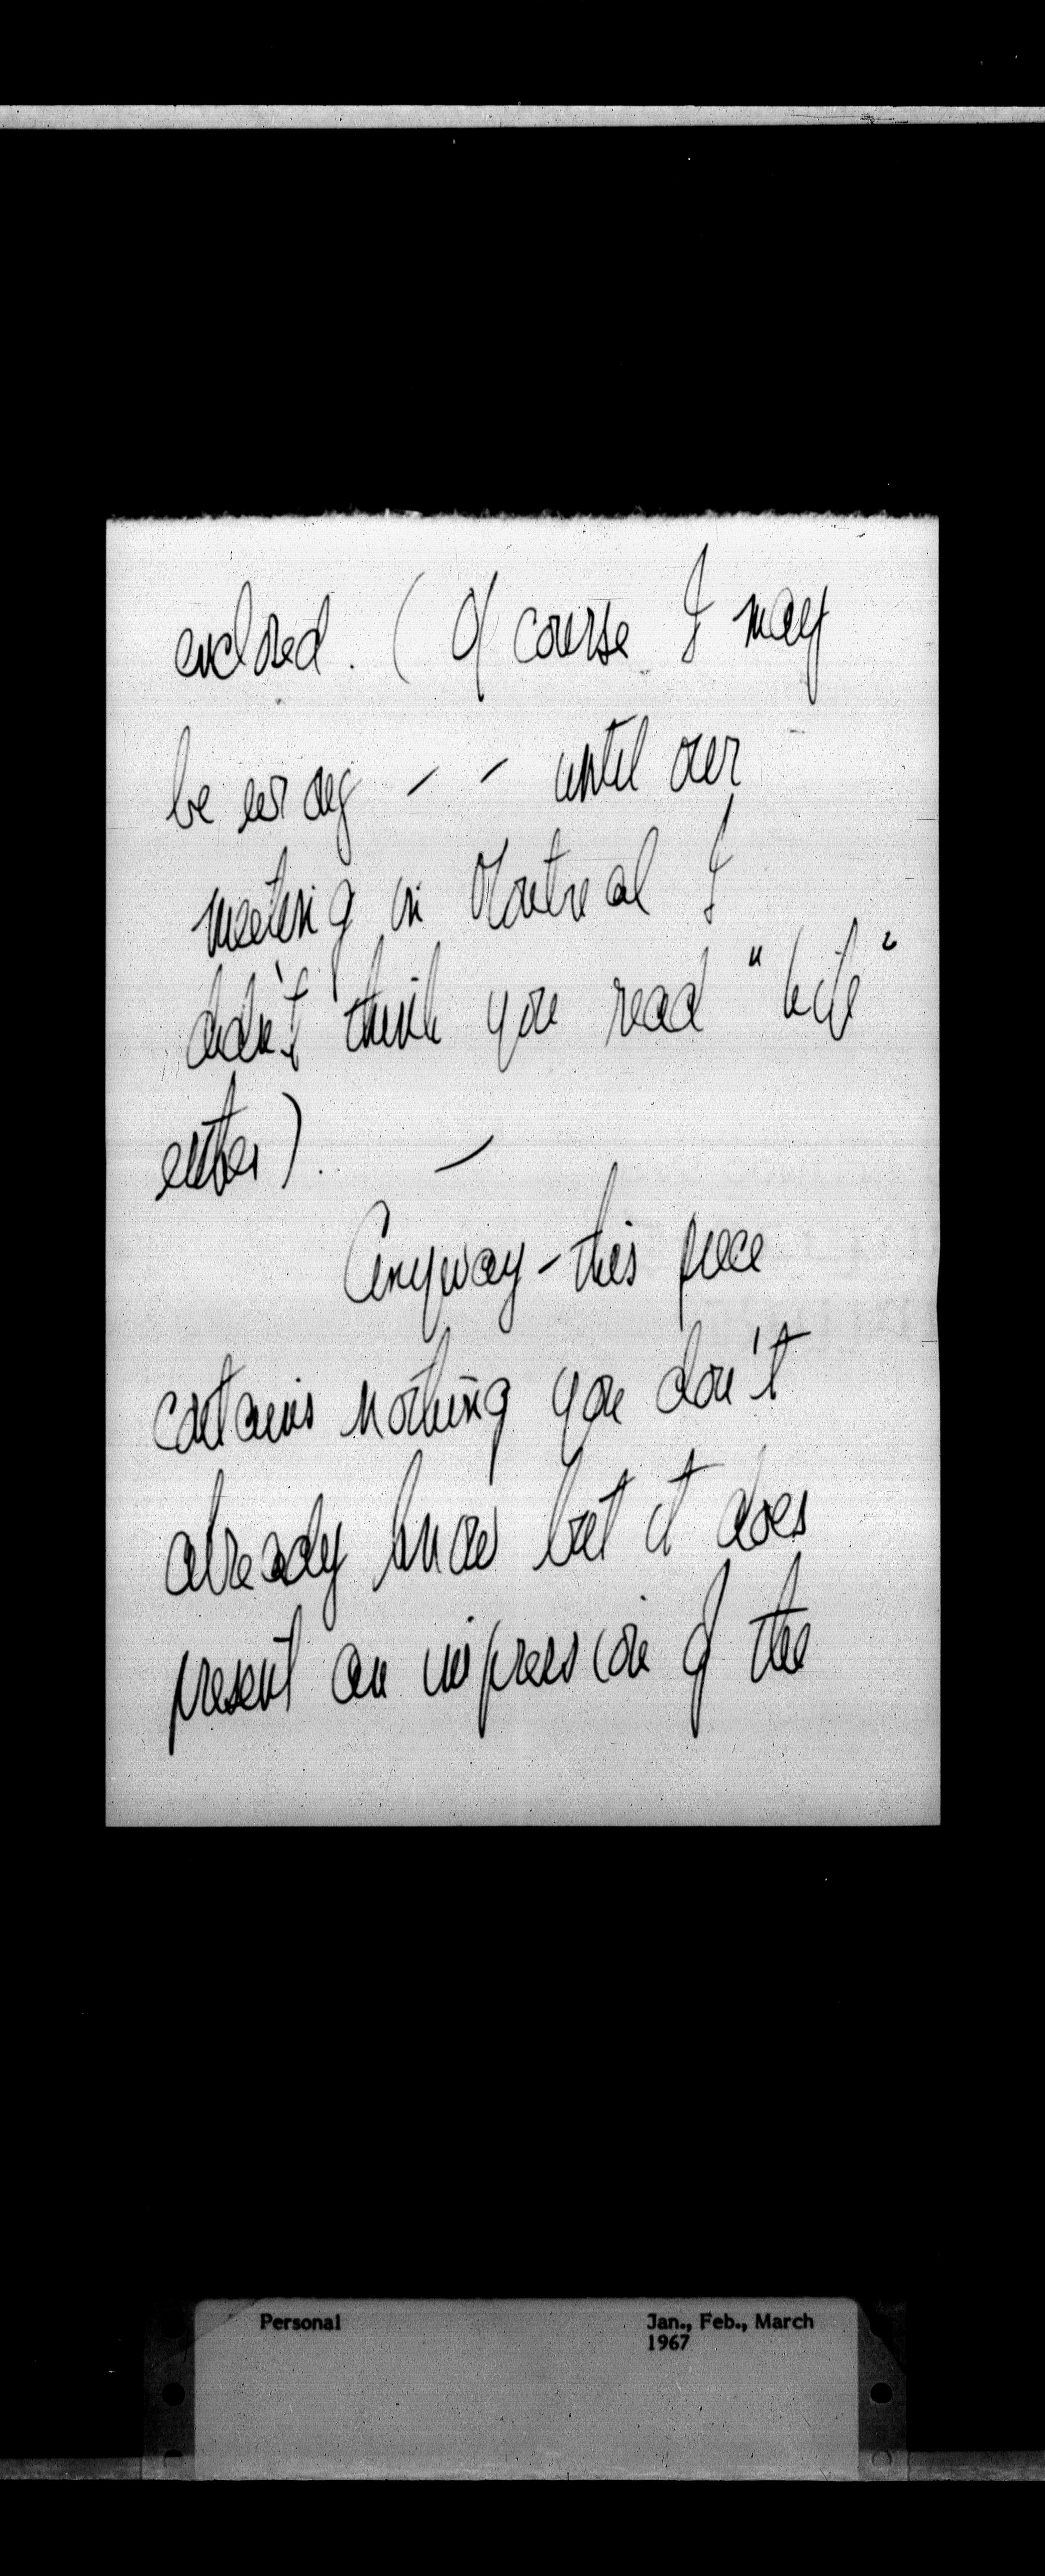 enclosed. (Of course I may
be wrong - - until our
meeting in Montreal I
didn't think you read "Life"
either). -
Anyway - this piece
contains nothing you don't
already know but it does
present an impression of the
Personal
Jan., Feb., March
1967